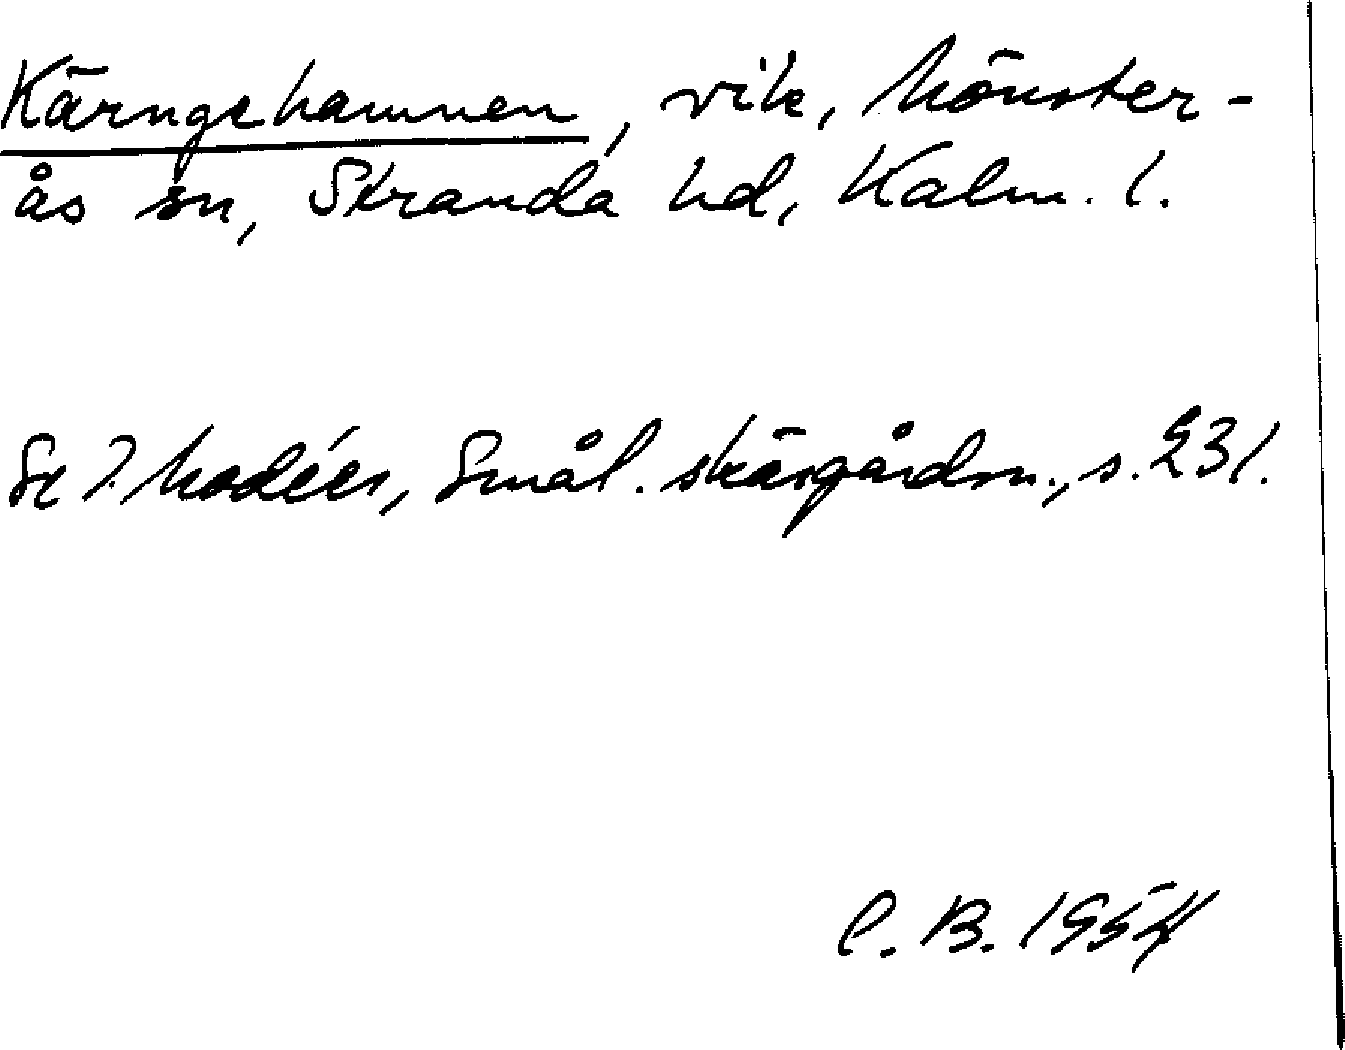 Kärngehamnen, vik, Mönster-
ås sn, Stranda hd, Kalm. l.
Se I. Modéer, Smål. skärgårdsn., s. 231.
C. B. 1954